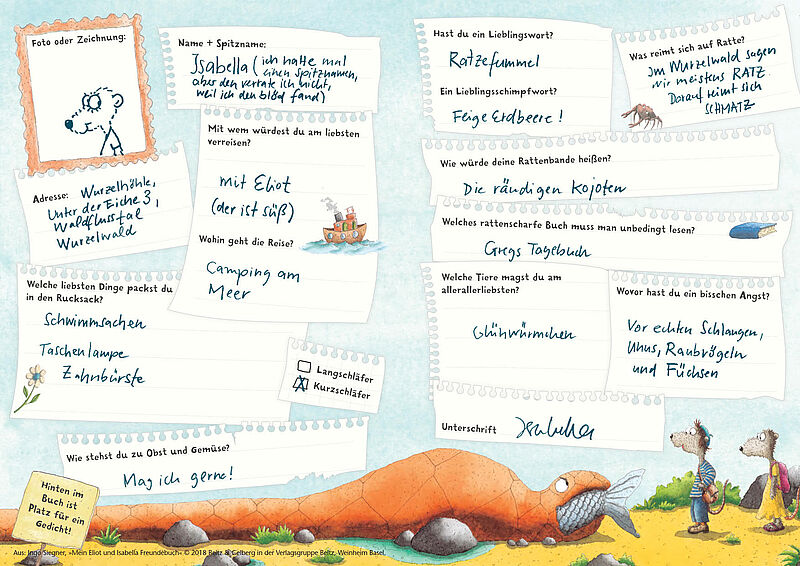 Foto oder Zeichnung:
Name + Spitzname:
Isabella (ich hatte mal
einen Spitznamen,
aber den verrate ich nicht,
weil ich den blöd fand)
Adresse: Wurzelhöhle,
Unter der Eiche 3,
Waldflusstal
Wurzelwald
Mit wem würdest du am liebsten
verreisen?
mit Eliot
(der ist süß)
Wohin geht die Reise?
Camping am
Meer
Welche liebsten Dinge packst du
in den Rucksack?
Schwimmsachen
Taschenlampe
Zahnbürste
Langschläfer
Kurzschläfer
Wie stehst du zu Obst und Gemüse?
Mag ich gerne!
Hinten im
Buch ist
Platz für ein
Gedicht!
Hast du ein Lieblingswort?
Ratzefummel
Ein Lieblingsschimpfwort?
Feige Erdbeere!
Was reimt sich auf Ratte?
Im Wurzelwald sagen
wir meistens RATZ.
Darauf reimt sich
SCHMATZ
Wie würde deine Rattenbande heißen?
Die räudigen Kojoten
Welches rattenscharfe Buch muss man unbedingt lesen?
Gregs Tagebuch
Welche Tiere magst du am
allerallerliebsten?
Glühwürmchen
Wovor hast du ein bisschen Angst?
Vor echten Schlangen,
Uhus, Raubvögeln
und Füchsen
Unterschrift Isabella
Aus: Ingo Siegner, »Mein Eliot und Isabella Freundebuch« © 2018 Beltz & Gelberg in der Verlagsgruppe Beltz, Weinheim Basel,